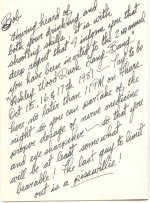 Bob
Having heard of
both your drinking and
shooting skills it is with
deep regret that I inform you that
you have been invited to the 2nd annual
"Pickled Wood Duck Camp-Camp".
Oct 15, 16 & 17th 1981 Try to be
here no later than 17PM on Thurs.
so that you can partake of the
proper dosage of nerve medicine
and eye sharpener - so that you
will be at least somewhat
bearable! The last guy to limit
out is a pissewillie!